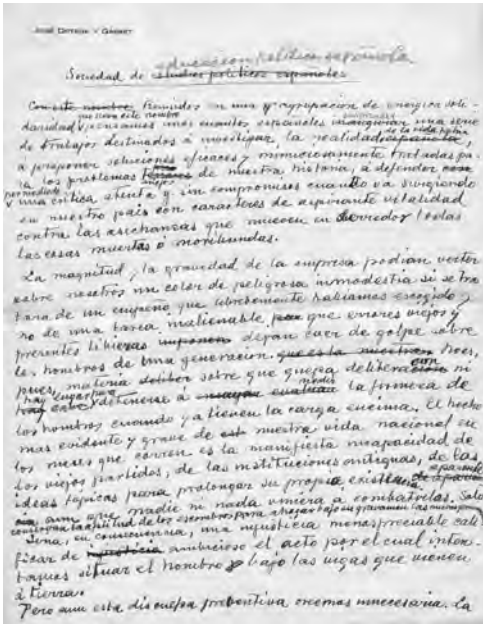 José Ortega y Gasset
educación política española
Sociedad de estudios políticos españoles
Con este nombre Reunidos en una agrupación de enérgica soli-
que lleva este nombre
daridad pensamos unos cuantos españoles inaugurar una serie
de trabajos destinados a investigar la realidad española,
de la vida patria
a proponer soluciones eficaces y minuciosamente tratadas pa-
ra los problemas de nuestra historia, a defender con
por medio de
una crítica atenta y sin compromisos cuanto va surgiendo
en nuestro país con caracteres de aspirante vitalidad
contra las asechanzas que mueven en derredor todas
las cosas muertas o moribundas.
La magnitud, la gravedad de la empresa podían verter
sobre nosotros un color de peligrosa inmodestia si se tra-
tara de un empeño que libremente habíamos escogido y
no de una tarea inalienable que errores viejos y
presentes dejan caer de golpe sobre
los hombros de una generación que esta No es,
pues, materia sobre que quepa deliberación ni
hay lugar
detenerse a medir la firmeza de
los hombros cuando ya tienen la carga encima. El hecho
mas evidente y grave de nuestra vida nacional en
los meses que corren es la manifiesta incapacidad de
los viejos partidos, de las instituciones antiguas, de las
ideas tópicas para prolongar su propia existencia
aparente
aun que nadie ni nada viniera a combatirlas. Solo
Sería, en consecuencia, una injusticia menospreciable cali-
ficar de ambicioso el acto por el cual inten-
tamos situar el hombro bajo las vigas que vienen
a tierra.
Pero aun esta disculpa preventiva creemos innecesaria. La